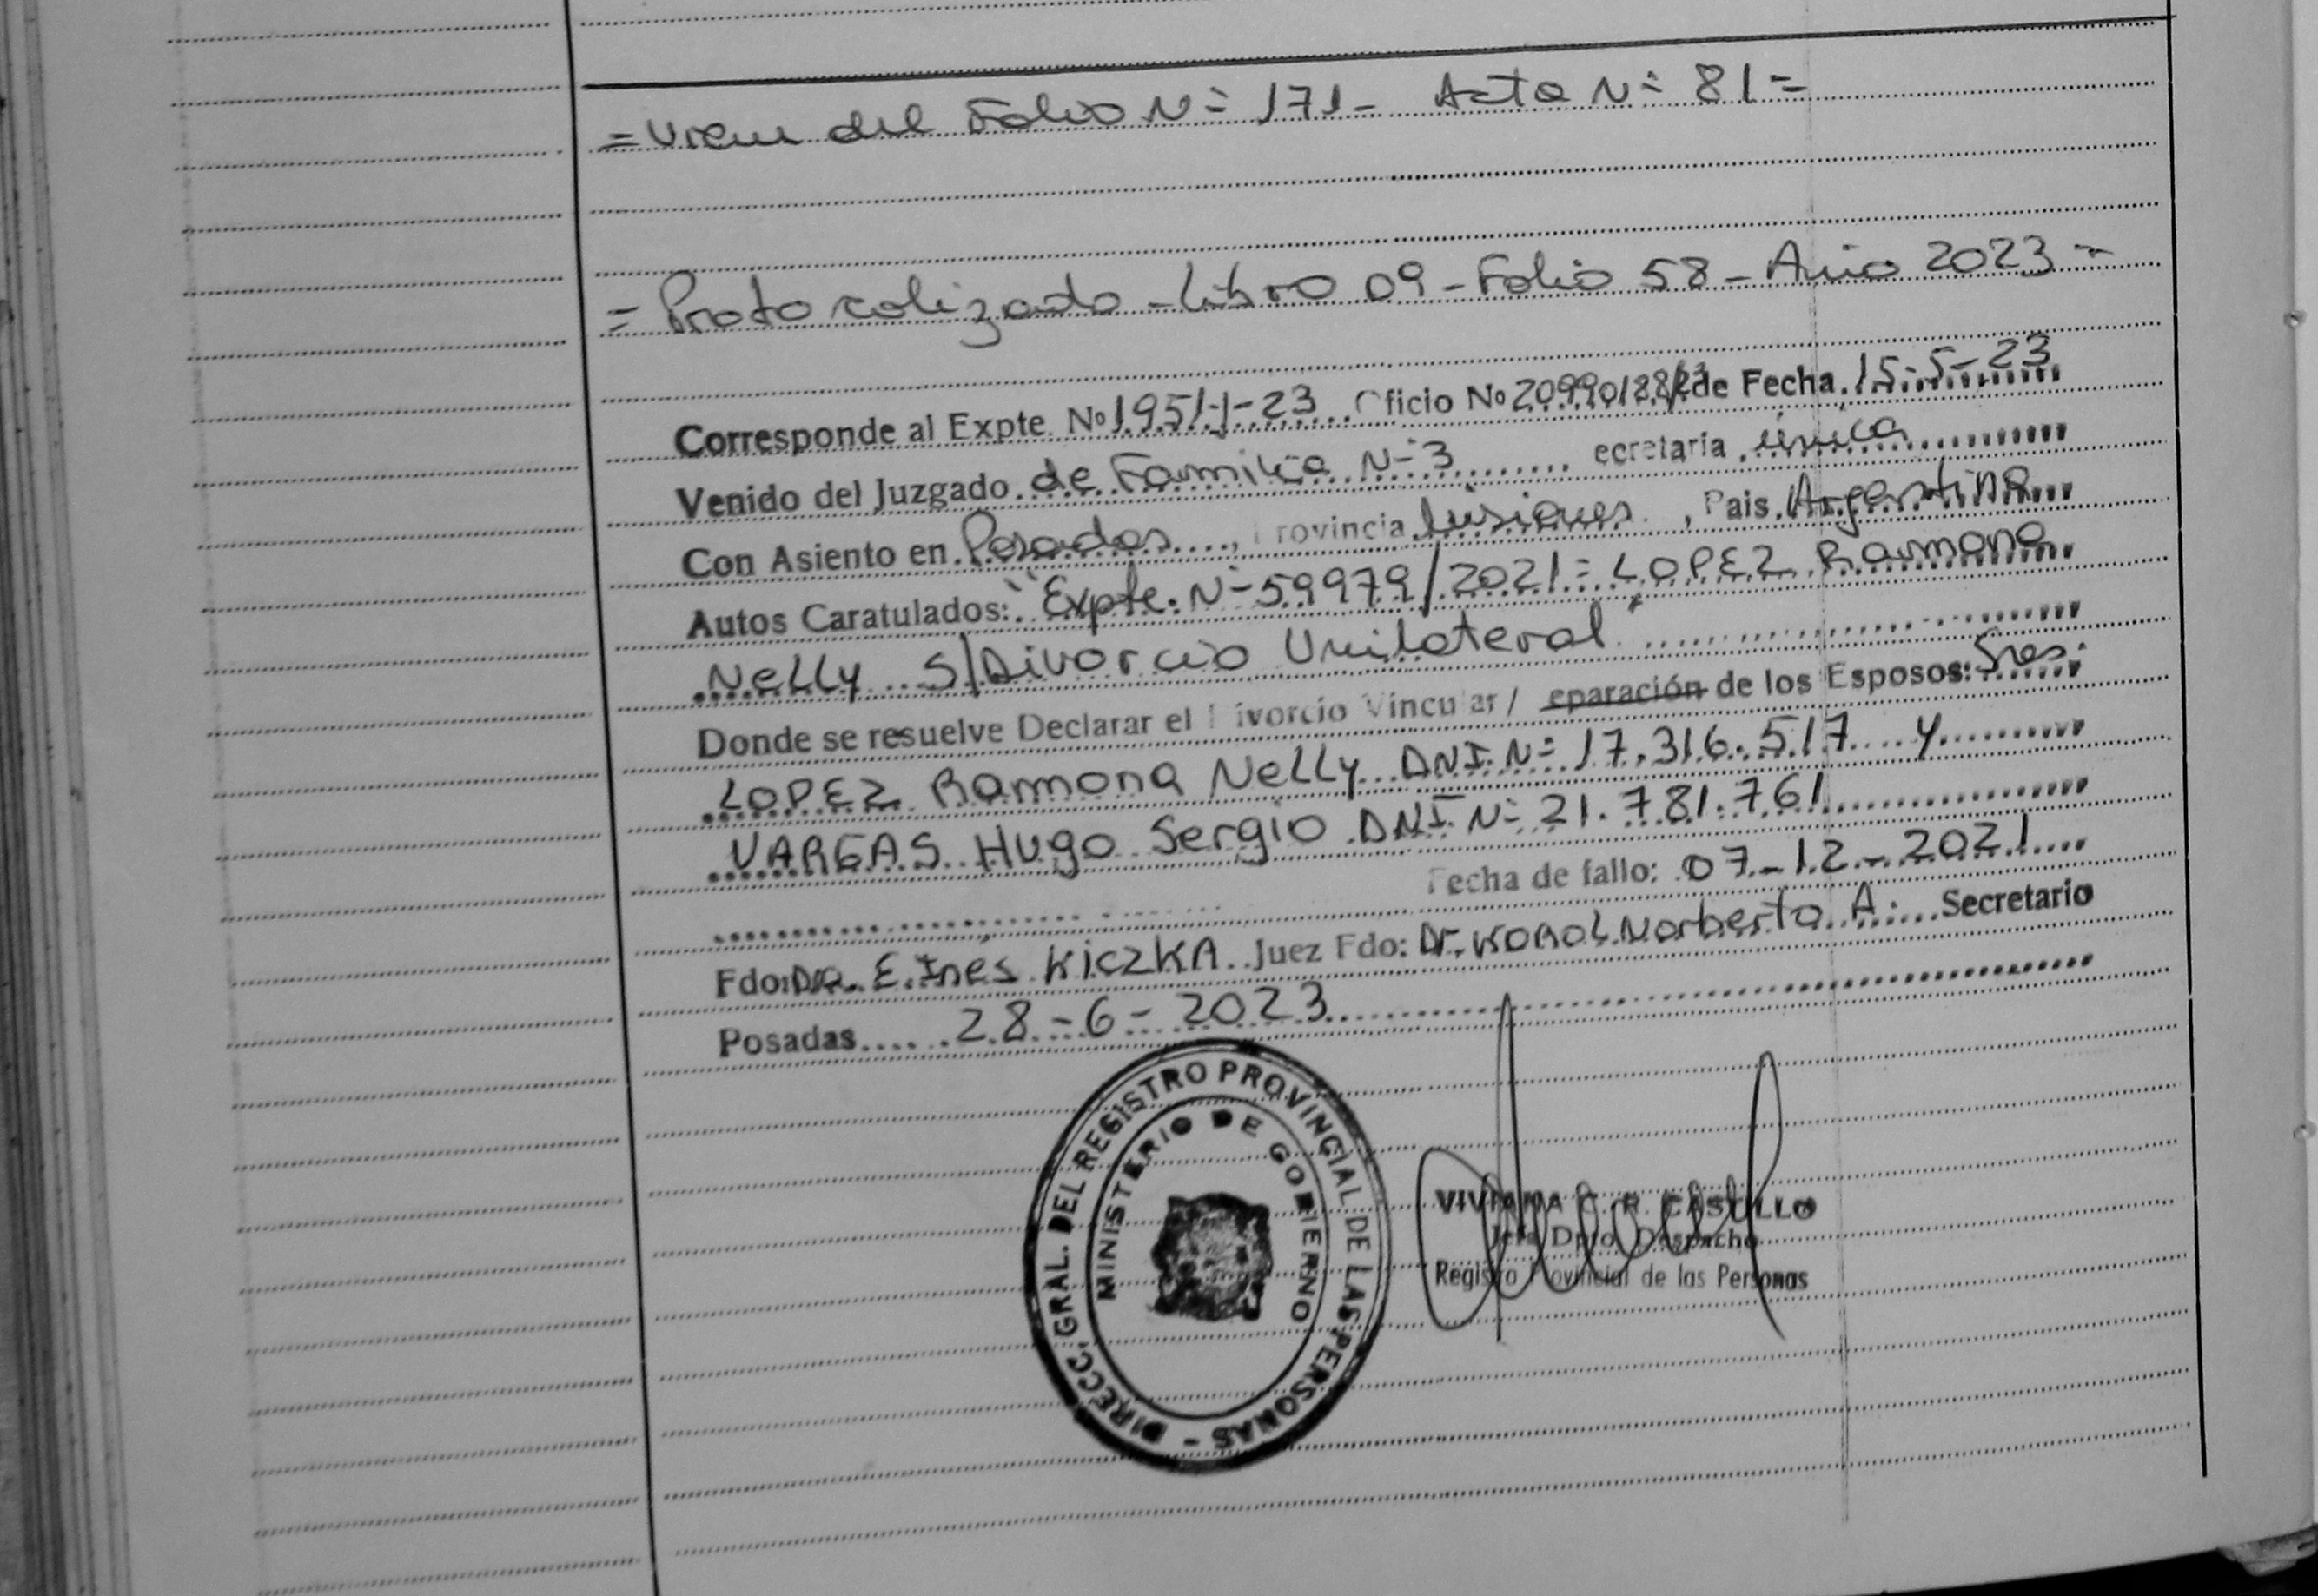 = Viene del Folio N= 171 - Acta N= 81 =
= Protocolizado - Libro 09 - Folio 58 - Año 2023 =
Corresponde al Expte. No 1951-J-23 Oficio No de Fecha 15-5-23
Venido del Juzgado de Familia N=3 ecretaria única
Con Asiento en Posadas, Provincia Misiones, Pais Argentina
Autos Caratulados: "Expte. N=59979/2021= LOPEZ Ramona
Nelly S/Divorcio Unilateral"
Donde se resuelve Declarar el Divorcio Vincular / eparación de los Esposos: Sres.
LOPEZ Ramona Nelly DNI N= 17.316.517 y
VARGAS Hugo Sergio DNI N= 21.781.761
Fecha de fallo: 07-12-2021
Fdo: Dra. E. Ines KiCZKA. Juez Fdo: Dr. KOROL Norberto A. Secretario
Posadas 28-6-2023
DIRECC. GRAL. DEL REGISTRO PROVINCIAL DE LAS PERSONAS -
MINISTERIO DE GOBIERNO
VIVIANA C. R. CASTILLO
Jefa Dpto. Despacho
Registro Provincial de las Personas